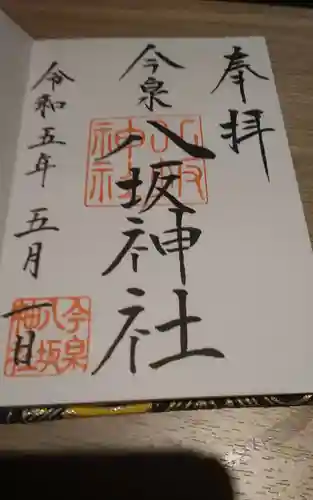 奉拝
今泉
八坂神社
令和五年五月一日
八坂
神社
今泉
八坂
神社